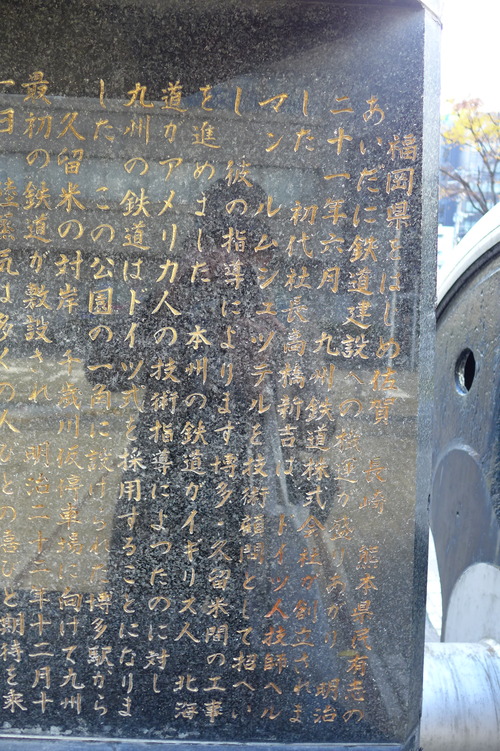 福岡県をはじめ佐賀 長崎 熊本県民有志の
あいだに鉄道建設への機運が盛りあがり 明治
二十一年六月 九州鉄道株式会社が創立されま
した 初代社長高橋新吉は ドイツ人技師ヘル
マン ルムシュッテルを技術顧問として招へい
し 彼の指導によります博多・久留米間の工事
を進めました 本州の鉄道がイギリス人 北海
道がアメリカ人の技術指導によつたのに対し
九州の鉄道はドイツ式を採用することになりま
した この公園の一角に設けられた博多駅から
久留米の対岸 千歳川仮停車場に向けて九州
最初の鉄道が敷設され 明治二十二年十二月十
一日 陸蒸気は多くの人びとの喜びと期待を乗